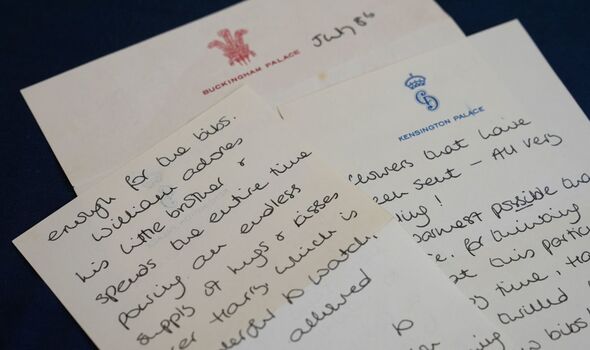 BUCKINGHAM PALACE
July 86
KENSINGTON PALACE
enough for the bibs.
William adores
his little brother &
spends the entire time
pouring an endless
supply of hugs & kisses
er Harry, which is
erful to watch,
allowed
to
flowers that have
een sent – All very
ing!
armest possible tha
e. for thinking
at this partic
time, ha
thrilled
bibs!